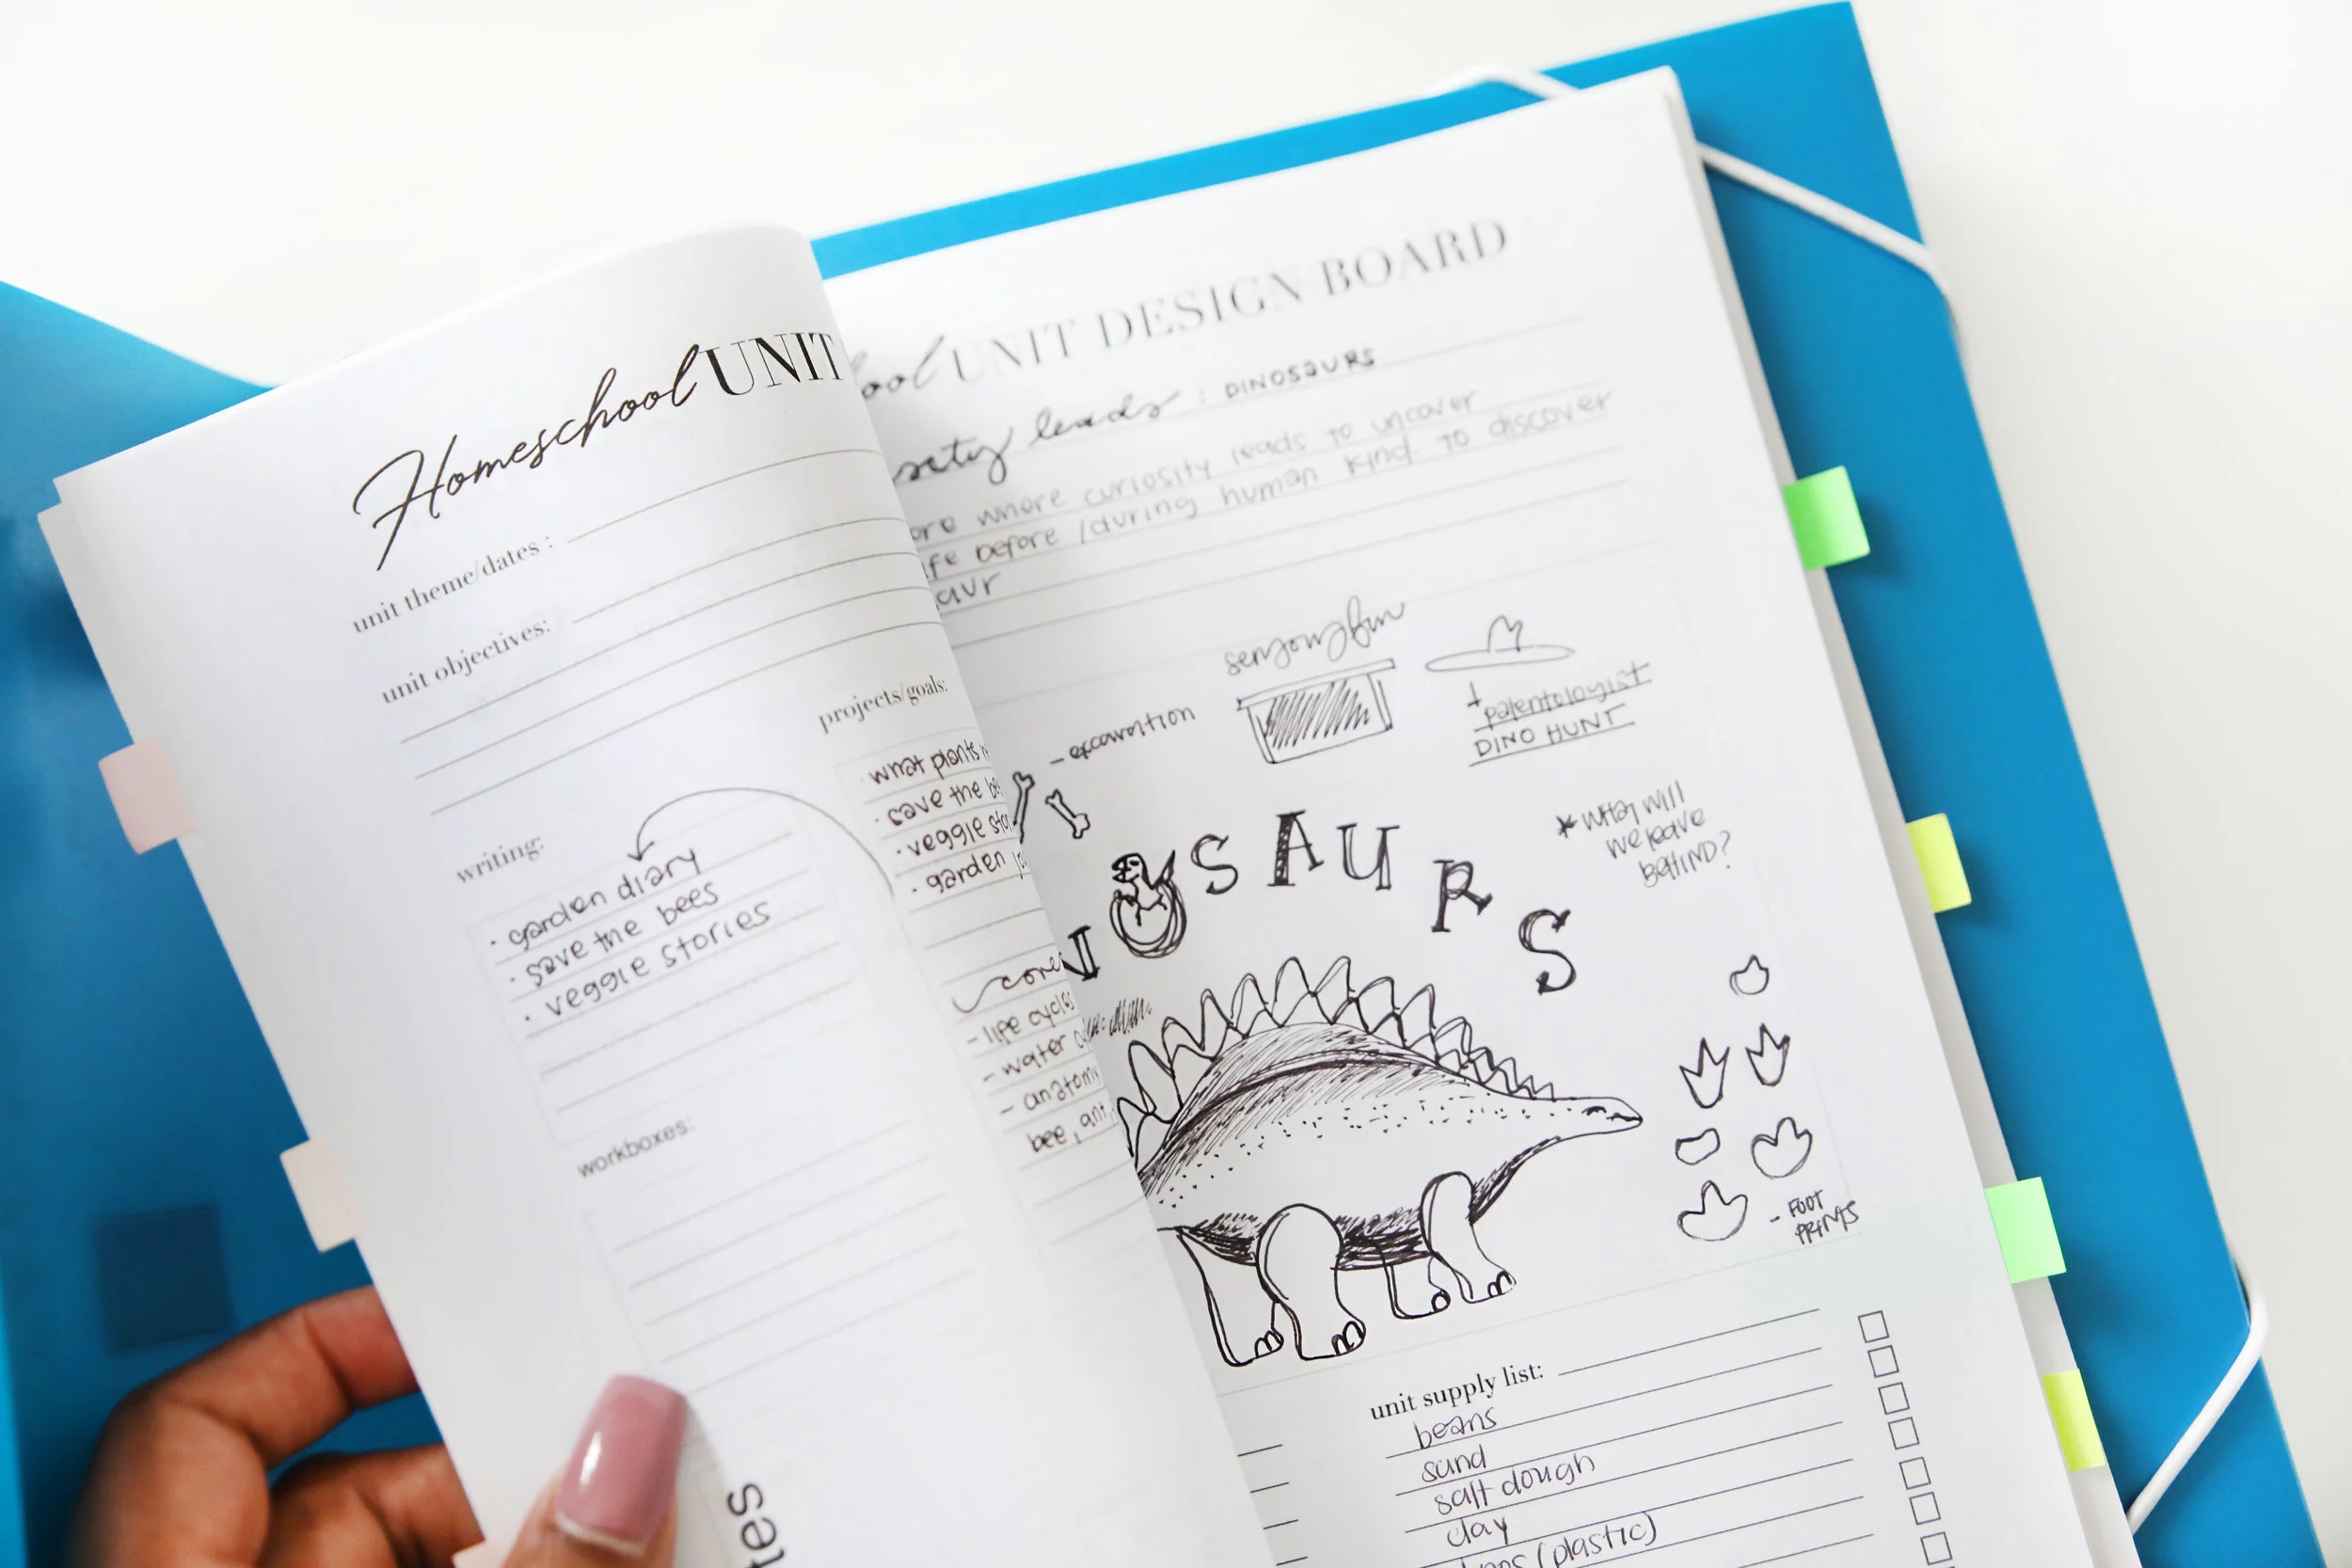 Homeschool UNIT
unit theme/dates :
unit objectives:
projects/goals:
· what plants
· save the
· veggie
· garden
writing:
· garden diary
· save the bees
· veggie stories
core
- life cycles
- water
- anatomy
bee, ant,
workboxes:
UNIT DESIGN BOARD
leads : DINOSAURS
where curiosity leads to uncover
before /during human kind to discover
sensory fun
- excavation
palentologist
DINO HUNT
* what will
we leave
behind?
N O S A U R S
- FOOT
PRINTS
unit supply list:
beans
sand
salt dough
clay
(plastic)